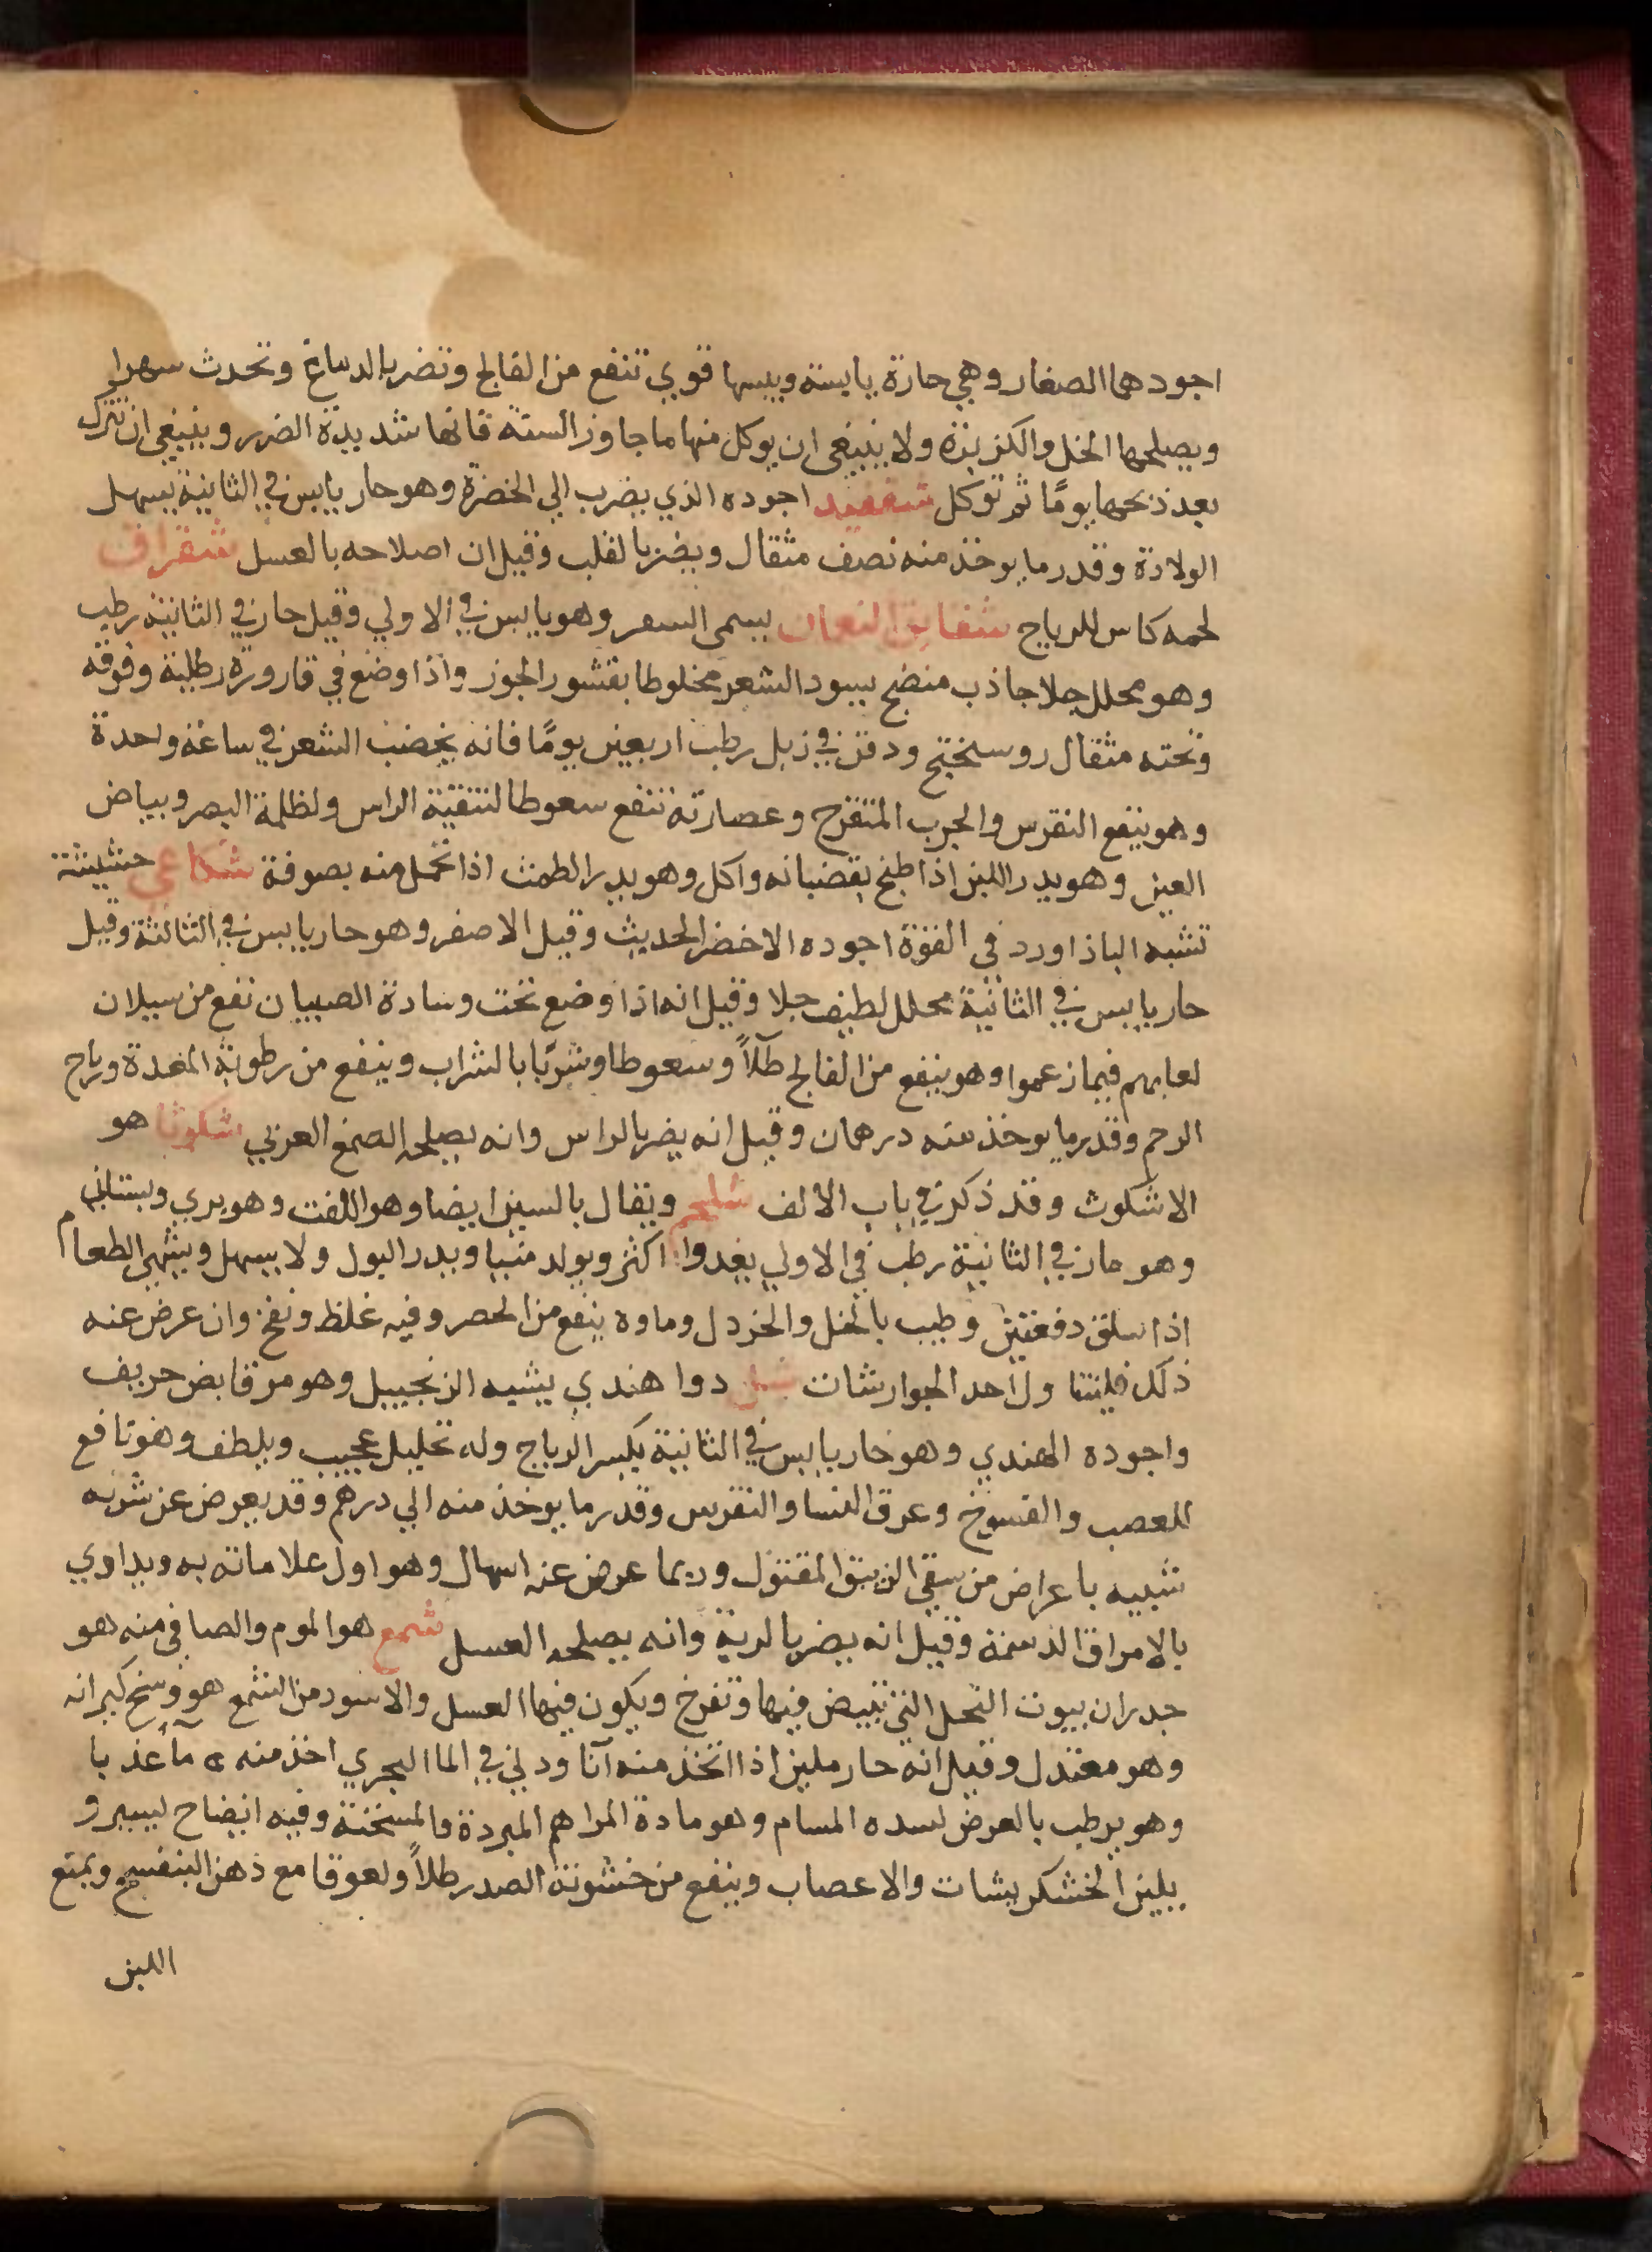 اجودها الصغار وهي حارة يابسة ويبسها قوي تنفع من الفالج وتضر بالدماغ وتحدث سهرا
ويصلحها الخل والكزبزة ولا ينبغي ان يوكل منها ما جاوز السنة فانها شديدة الضرر وينبغي ان تترك
بعد ذبحها يومًا ثم توكل اجوده الذي يضرب الي الخضرة وهو حار يابس في الثانية يسهل
الولادة وقدر ما يوخذ منه نصف مثقال ويضر بالقلب وقيل ان اصلاحه بالعسل شقراق
لحمه كاسر للرياح شقايق النعمان يسمى السعر وهو يابس في الاولي وقيل حار في الثانية رطب
وهو محلل جلا جاذب منضج يسود الشعر مخلوطا بقشور الجوز واذا وضع في قارورة رطلية وفوقه
وتحته مثقال روسختج ودفن في زبل رطب اربعين يومًا فانه يخضب الشعر في ساعة واحدة
وهو ينفع النقرس والجرب المتقرح وعصارته تنفع سعوطا لتنقية الراس ولظلمة البصر وبياض
العين وهو يدر اللبن اذا طبخ بقضبانه واكل وهو يدر الطمث اذا تحمل منه بصوفة شكاعي حشيشة
تشبه الباذاورد في القوة اجوده الاخضر الحديث وقيل الاصفر وهو حار يابس في الثالثة وقيل
حار يابس في الثانية محلل لطيف جلا وقيل انه اذا وضع تحت وسادة الصبيان نفع من سيلان
لعابهم فيما زعموا وهو ينفع من الفالج طلاً وسعوطا وشربًا بالشراب وينفع من رطوبة المعدة ورياح
الرحم وقدر ما يوخذ منه درهمان وقيل انه يضر بالراس وانه يصلحه الصمغ العربي شكوثا هو
الاشكوث وقد ذكر في باب الالف شلجم ويقال بالسين ايضا وهو اللفت وهو بري وبستاني
وهو حار في الثانية رطب في الاولي يغدوا اكثر ويولد منيا ويدر البول ولا يسهل ويشهي الطعام
اذا سلق دفعتين وطيب بالخل والخردل وماوه ينفع من الحصر وفيه غلظ ونفخ وان عرض عنه
ذلك فليتناول احد الجوارشات شل دوا هندي يشبه الزنجبيل وهو مر قابض حريف
واجوده الهندي وهو حار يابس في الثانية يكسر الرياح وله تحليل عجيب ويلطف وهو نافع
للعصب والفسوخ وعرق النسا والنقرس وقدر ما يوخذ منه الي درهم وقد يعرض عن شربه
شبيه باعراض من سقي الزيبق المقتول وربما عرض عنه اسهال وهو اول علاماته به ويداوي
بالامراق الدسمة وقيل انه يضر بالرية وانه يصلحه العسل شمع هو الموم والصافي منه هو
جدران بيوت النحل التي تبيض فيها وتفرخ ويكون فيها العسل والاسود من الشمع هو وسخ كيرانه
وهو معتدل وقيل انه حار ملين اذا اتخذ منه آنا ودلي في الما البحري اخذ منه مآ عذبا
وهو يرطب بالعرض لسده المسام وهو مادة المراهم المبردة والمسخنة وفيه انضاح يسير و
يلين الخشكريشات والاعصاب وينفع من خشونة الصدر طلاً ولعوقا مع دهن البنفسج ويمنع
اللبن